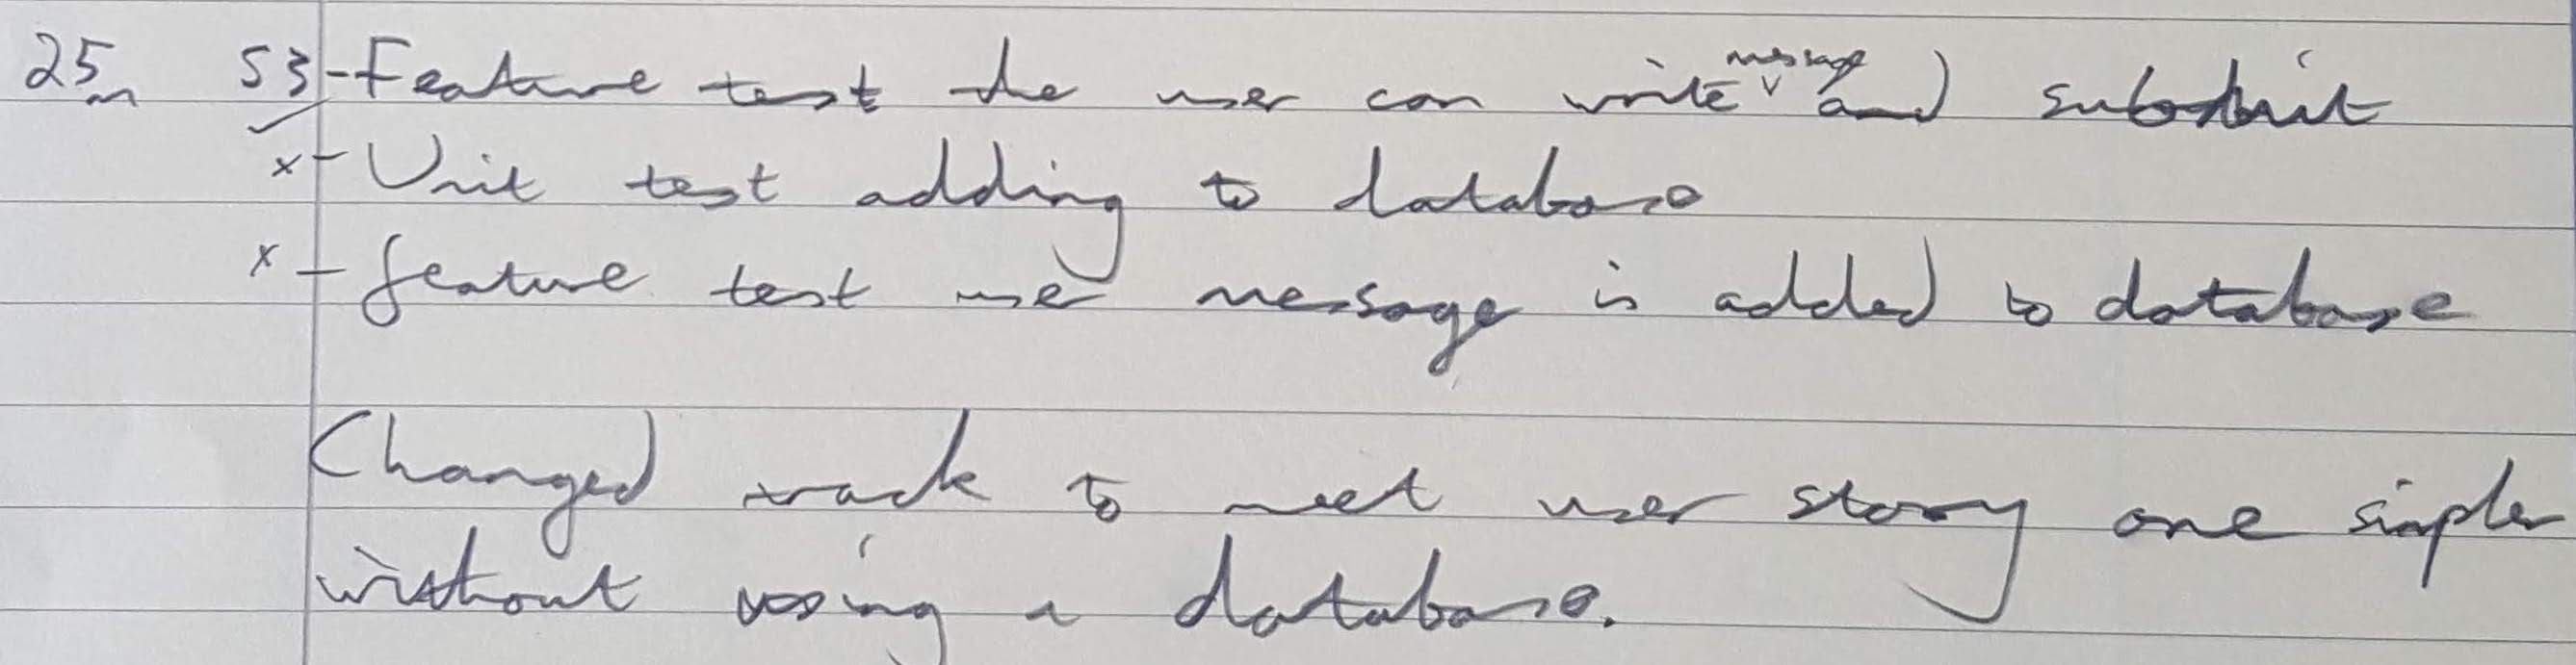 25m 53 - Feature test the user can write message and submit
x - Unit test adding to database
x - feature test user message is added to database
Changed track to meet user story one simpler
without using a database.